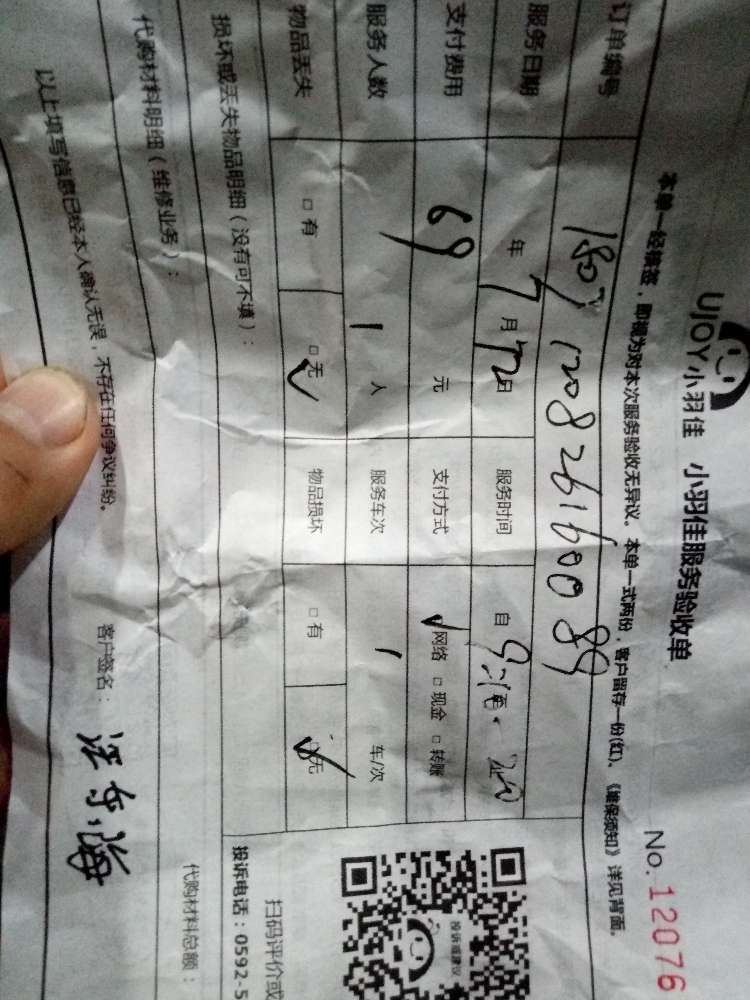 UJOY小羽佳 小羽佳服务验收单
No.12076
本单一经核签，即视为对本次服务验收无异议。本单一式两份，客户留存一份(红)。《维保须知》详见背面。
订单编号 1807120826160089
服务日期 年 7 月 12 日 服务时间 自
支付费用 69 元 支付方式 ☑网络 □现金 □转账
服务人数 1 人 服务车次 1 车/次
物品丢失 □有 ☑无 物品损坏 □有 ☑无
损坏或丢失物品明细（没有可不填）：
投诉或建议
扫码评价或
投诉电话：0592-5
代购材料明细（维修业务）：
代购材料总额：
以上填写信息已经本人确认无误，不存在任何争议纠纷。 客户签名：